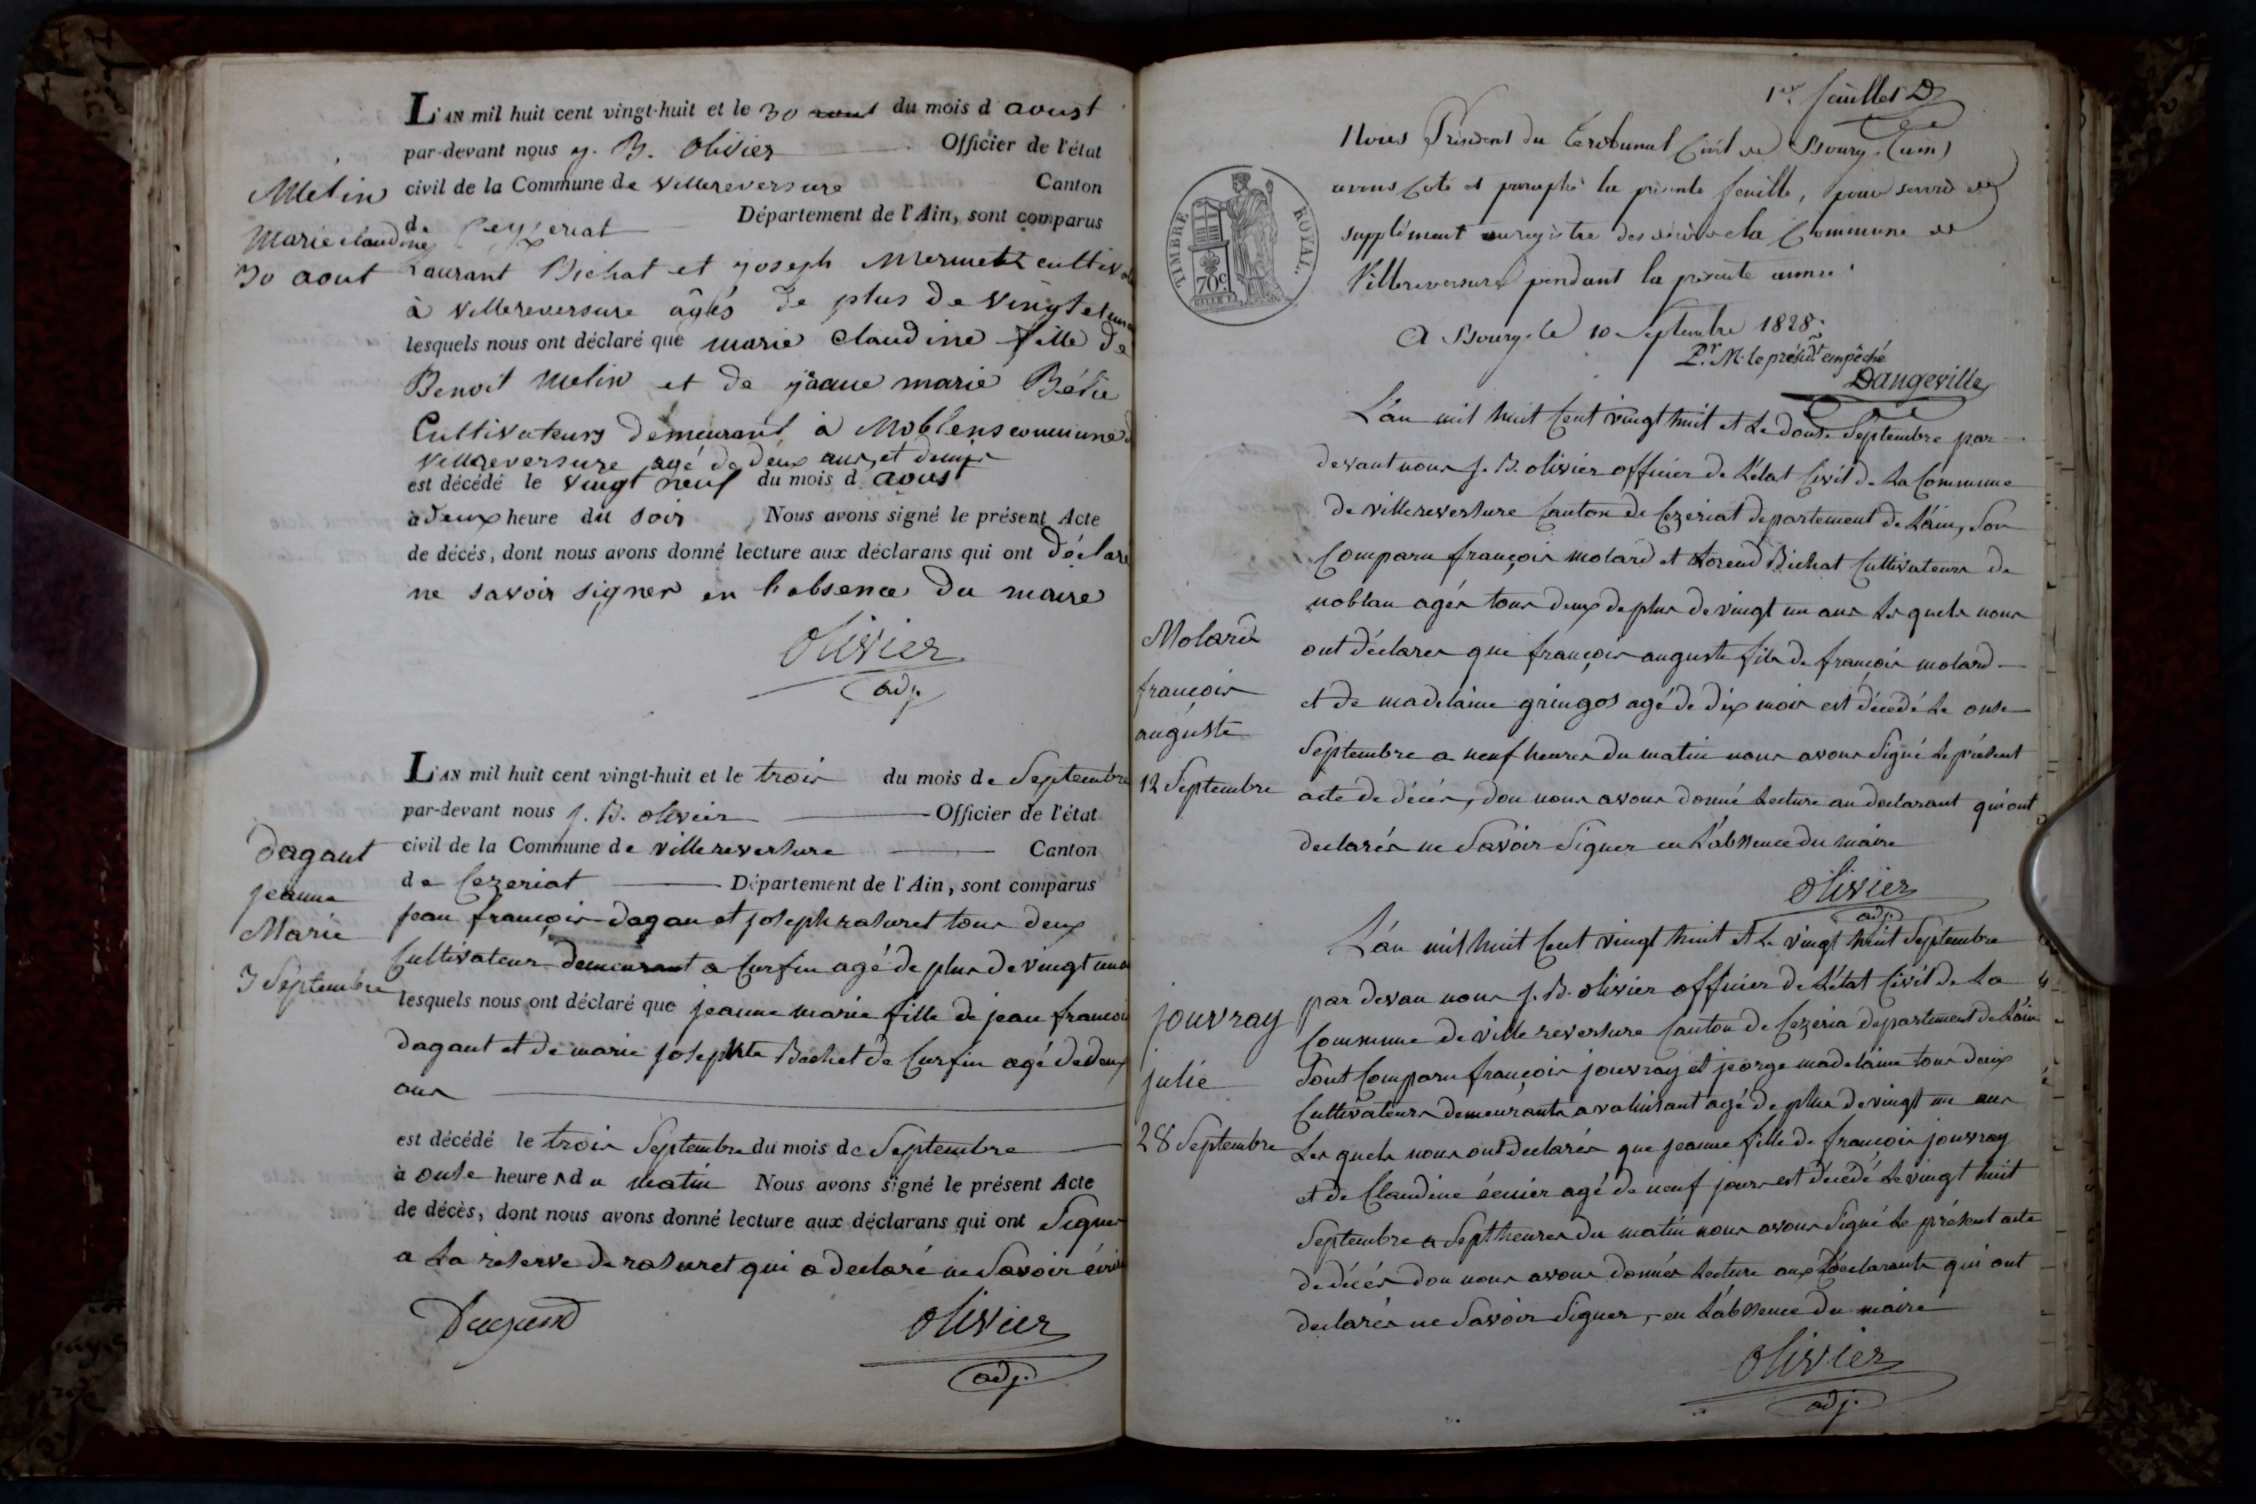 L'AN mil huit cent vingt-huit et le 30 aout du mois d aoust
par-devant nous j. B. Olivier Officier de l'état
civil de la Commune de Villereversure Canton
de Ceyzeriat Département de l'Ain, sont comparus
Laurant Bichat et joseph Mermet cultiv
à Villereversure âgés de plus de vingt et un
lesquels nous ont déclaré que marie Claudine fille de
Benoit Melin et de jeanne marie
Cultivateurs demeurant à Noblens commune
Villereversure agé de deux ans et demi
est décédé le vingt neuf du mois d aoust
à deux heure du soir Nous avons signé le présent Acte
de décès, dont nous avons donné lecture aux déclarans qui ont déclaré
ne savoir signer en l'absence du maire
Olivier
adj.
Melin
Marie claudine
30 aout
L'AN mil huit cent vingt-huit et le trois du mois de Septembre
par-devant nous j. B. olivier Officier de l'état
civil de la Commune de villereversure Canton
de Cezeriat Département de l'Ain, sont comparus
jean françois dagan et joseph rasuret tous deux
Cultivateur demeurant a Curfin agé de plus de vingt un
lesquels nous ont déclaré que jeanne marie fille de jean francoi
dagant et de marie josephte Bochet de Curfin agé de deux
ans
est décédé le trois Septembre du mois de Septembre
à onse heures du matin Nous avons signé le présent Acte
de décès, dont nous avons donné lecture aux déclarans qui ont Signer
a La reserve de rasuret qui a declaré ne Savoir écrire
Dagand
Olivier
adj.
dagant
jeanne
Marie
3 Septembre
1er feuillet D
Nous Président du Tribunal Civil de Bourg (ain)
avons Coté et paraphé la présente feuille, pour servir de
supplément au registre des décès de la Commune de
Villereversure pendant la présente année.
A Bourg le 10 Septembre 1828.
Pr. M. le présidt. empêché
Dangeville
TIMBRE ROYAL.
70c
L'an mil huit Cent vingt huit et Le douse Septembre par
devant nous j. B. olivier officier de L'état Civil de La Commune
de villereversure Canton de Cezeriat departement de L'ain, Son
Comparu françois molard et Lorend Bichat Cultivateurs de
noblan agés tous deux de plus de vingt un ans Les quels nous
ont déclarer que françois auguste fils de françois molard
et de madelaine gringos agé de dix mois est décedé Le onse
Septembre a neuf heures du matin nous avons Signé Le présent
acte de décès, don nous avons donné Lecture au declarant qui ont
declarés ne Savoir Signer en L'absence du maire
Olivier
adj.
Molard
françois
auguste
12 Septembre
L'an mil huit Cent vingt huit et Le vingt huit Septembre
par devan nous j. B. olivier officier de L'état Civil de La
Commune de ville reversure Canton de Cezeria departement de L'ain
Sont Comparu françois jouvray et jeorge madelaine tous deux
Cultivateurs demeurants a valuisant agé de plus de vingt un ans
Les quels nous ont declarés que jeanne fille de françois jouvray
et de Claudine agé de neuf jours est décedé Le vingt huit
Septembre a Sept heures du matin nous avons Signé Le présent acte
de décès don nous avons donnés Lecture aux Declarants qui ont
declarés ne Savoir Signer, en L'absence du maire
Olivier
adj.
jouvray
julie
28 Septembre